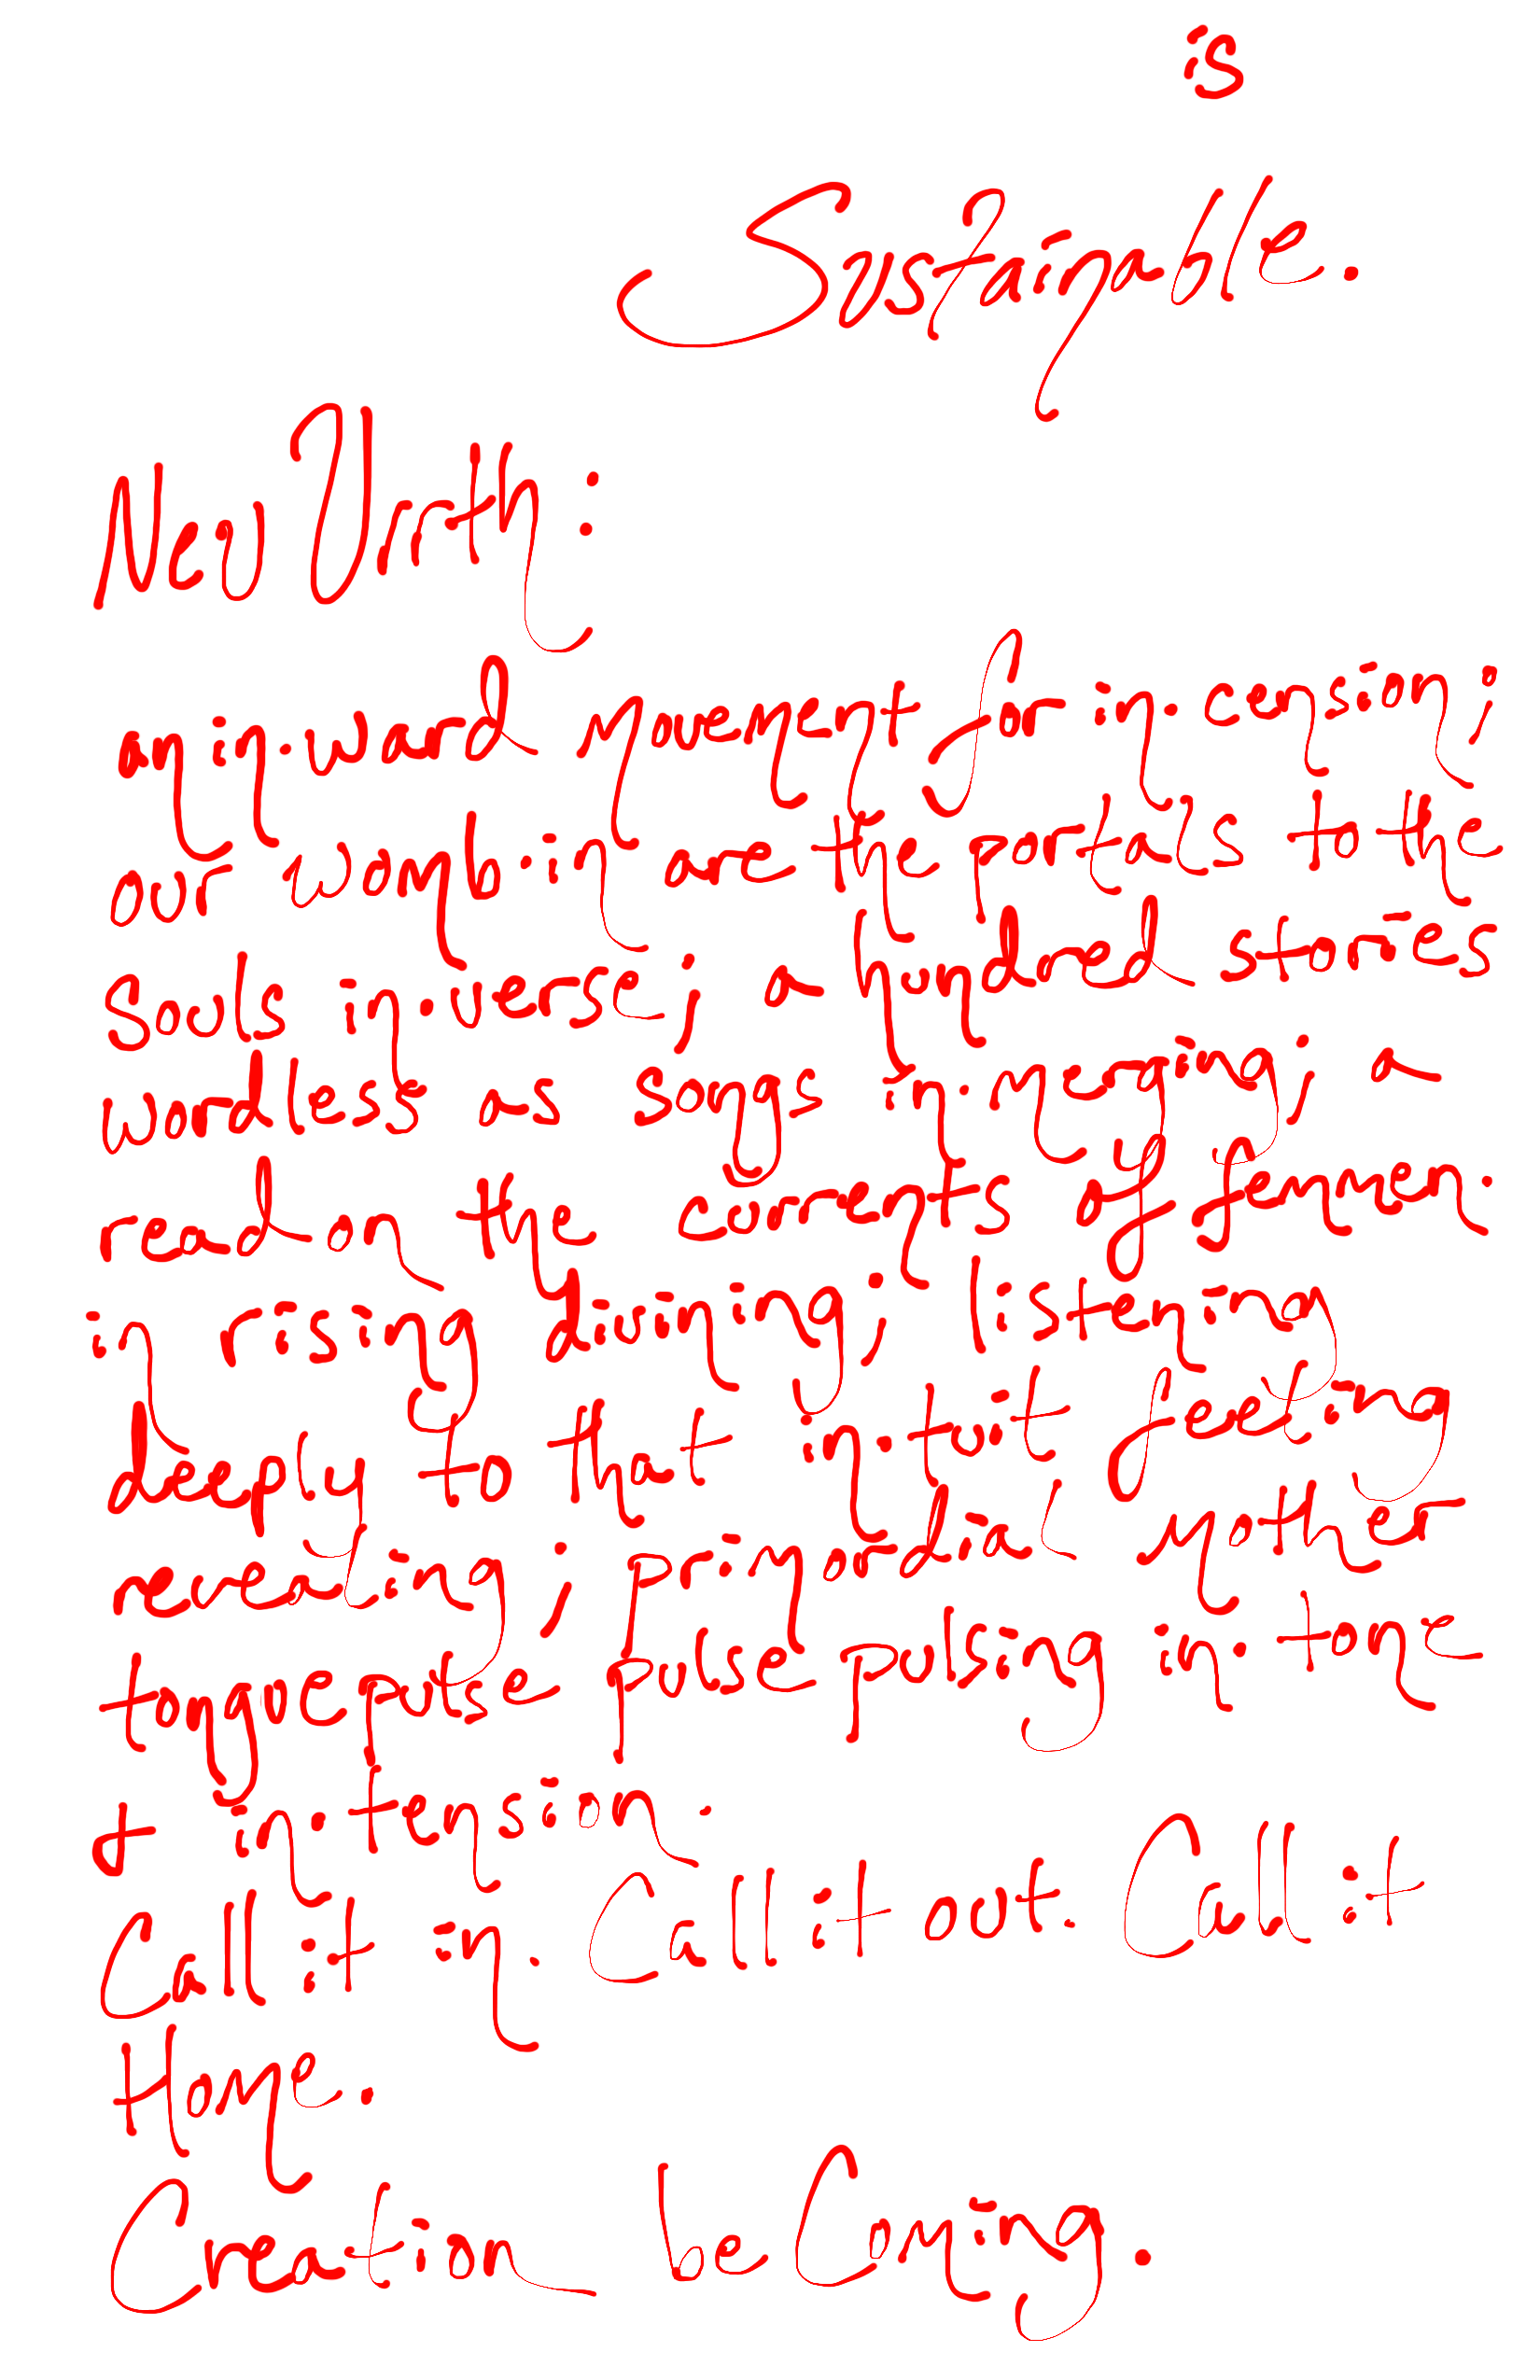 is
Sustainable.
Neu Urrth:
an in·ward movement for in·cension;
our womb·in are the portals to the
Souls in·verse; a hundred stories
wordless as songs in·merging; a
read on the currents of femmen·
in rising divining; listening
deeply to that in·tuit feeling
revealing; primordial mother
tongue pulse pulsing in·tone
& in·tension.
Call it in. Call it out. Call it
Home.
Creation be Coming.